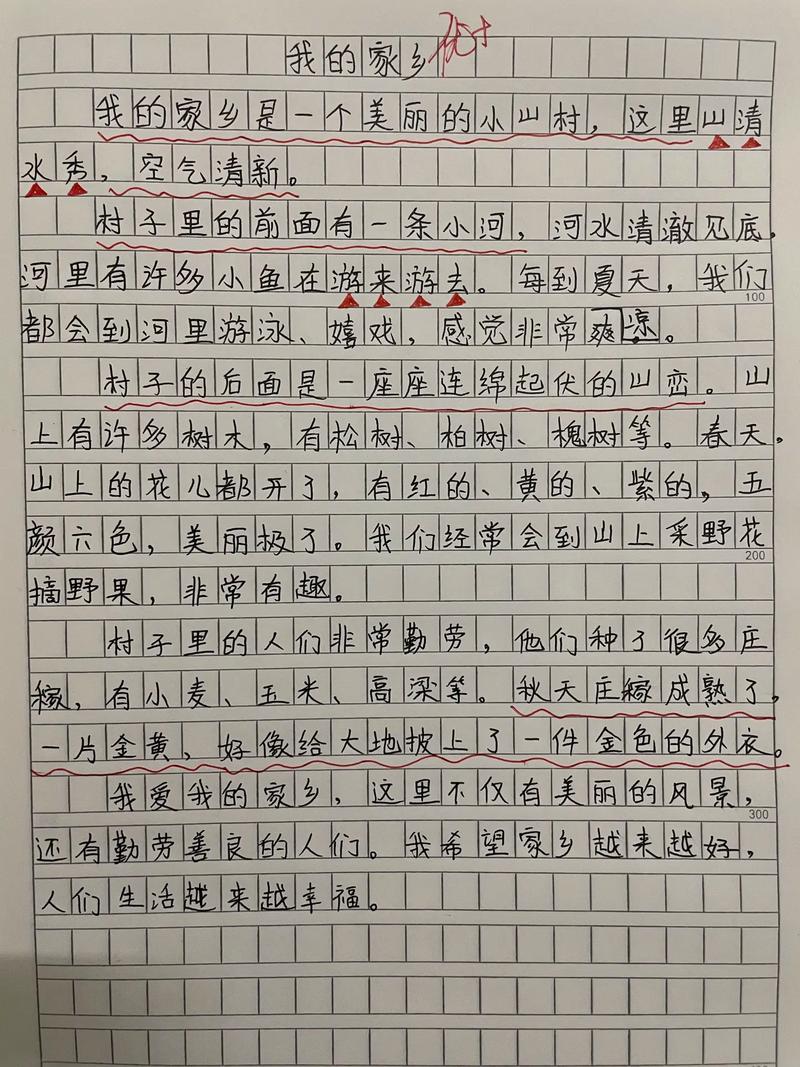 我的家乡 优+
我的家乡是一个美丽的小山村，这里山清
水秀，空气清新。
村子里的前面有一条小河，河水清澈见底，
河里有许多小鱼在游来游去。每到夏天，我们
都会到河里游泳、嬉戏，感觉非常爽凉。
100
村子的后面是一座座连绵起伏的山峦。山
上有许多树木，有松树、柏树、槐树等。春天，
山上的花儿都开了，有红的、黄的、紫的，五
颜六色，美丽极了。我们经常会到山上采野花
200
摘野果，非常有趣。
村子里的人们非常勤劳，他们种了很多庄
稼，有小麦、玉米、高梁等。秋天庄稼成熟了，
一片金黄，好像给大地披上了一件金色的外衣。
我爱我的家乡，这里不仅有美丽的风景，
300
还有勤劳善良的人们。我希望家乡越来越好，
人们生活越来越幸福。